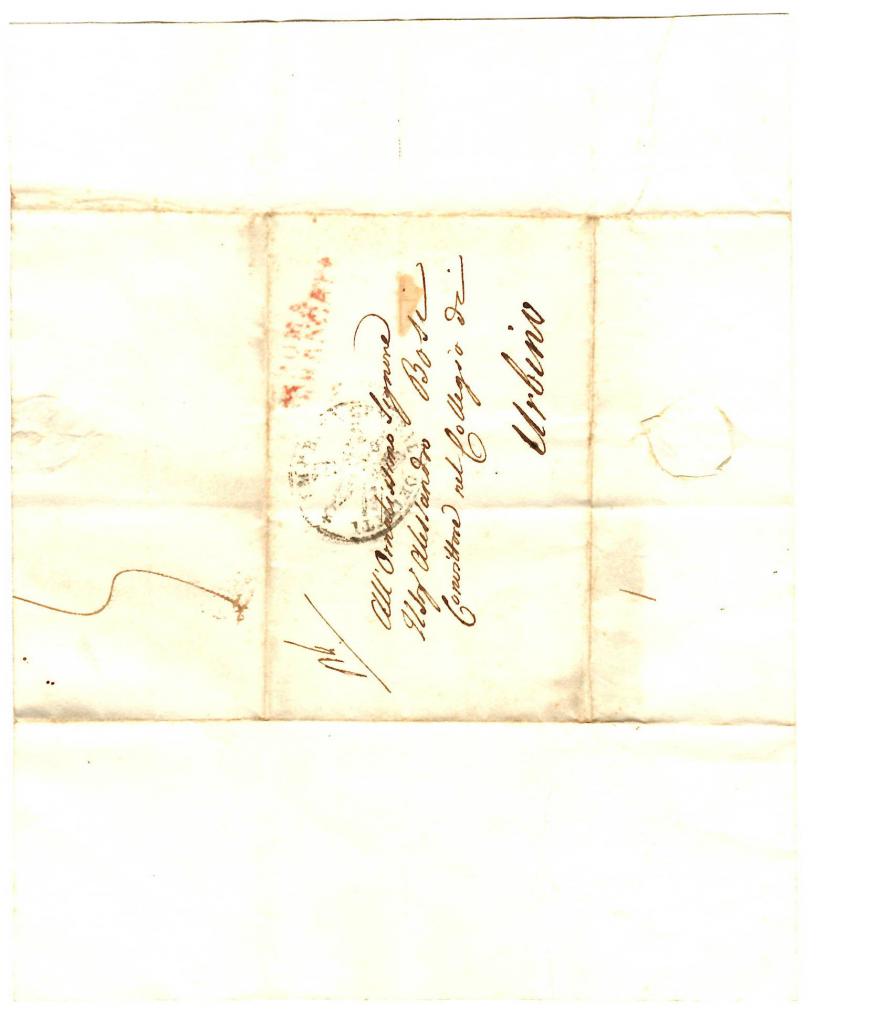 ROMA
All' Ornatissimo Signore
Il Sig.r Alessandro Bosi
Convittore nel Collegio di
Urbino